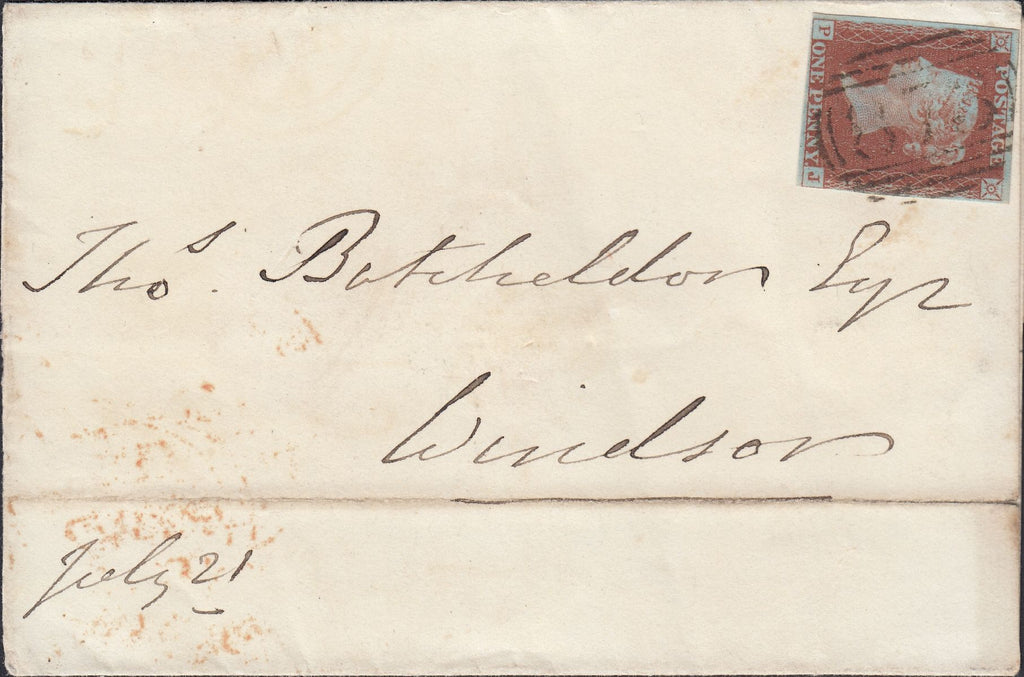 POSTAGE
P J
ONE PENNY.
Thos. Batcheldor Esqr
Windsor
July 21